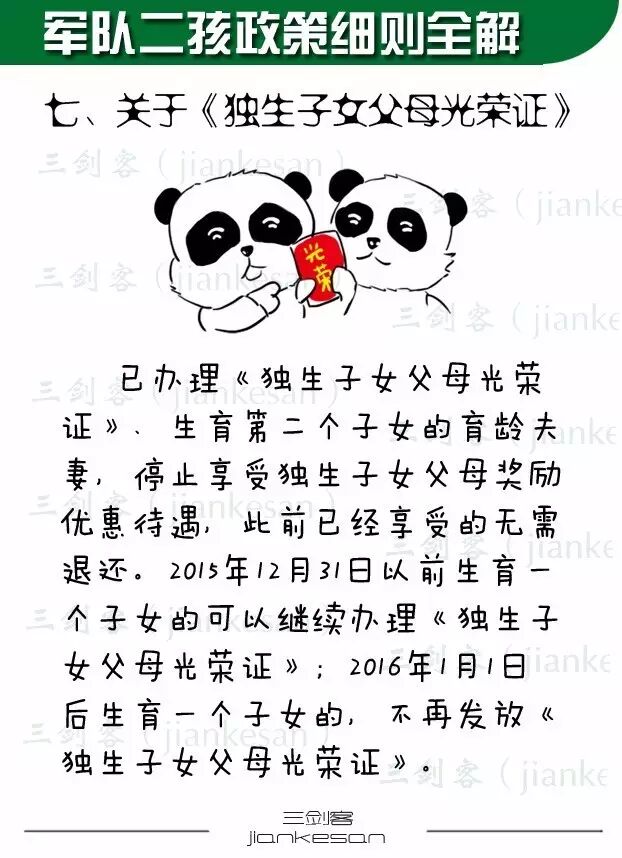 军队二孩政策细则全解
七、关于《独生子女父母光荣证》
三剑客（jiankesan）
三剑客（jianke
光荣
三剑客（jiankesan）
三剑客（jianke
已办理《独生子女父母光荣
证》、生育第二个子女的育龄夫
妻，停止享受独生子女父母奖励
优惠待遇，此前已经享受的无需
退还。2015年12月31日以前生育一
个子女的可以继续办理《独生子
女父母光荣证》；2016年1月1日
后生育一个子女的，不再发放《
独生子女父母光荣证》。
三剑客
jiankesan